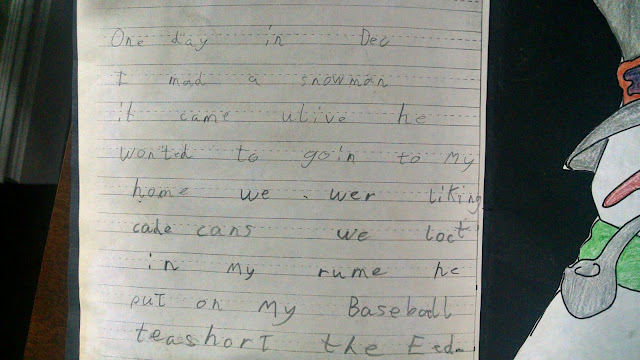 One day in Dec
I mad a snowman
it came ulive he
wonted to goin to My
home we wer liking
cade cans we loct
in my rume he
put on My Baseball
teashort the Eedn